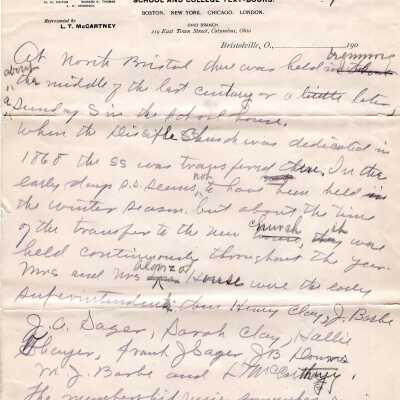 SCHOOL AND COLLEGE TEXT-BOOKS.
BOSTON. NEW YORK. CHICAGO. LONDON.
Represented by
L. T. McCARTNEY
OHIO BRANCH
219 East Town Street, Columbus, Ohio
Bristolville, O., 190
At North Bristol there was held in
about the middle of the last century or a little later
a Sunday S in the school house.
When the Disciple Church was dedicated in
1868 the SS was transferred. In the
early days S.S. seems not to have been held in
the winter season. but about the time
of the transfer to the new church th was
held continuously throughout the year.
Mrs and Mrs Alonzo House were the early
superintendents, then Henry Clay, J. Barbe
J. A. Sager, Sarah Clay, Hallie
Thayer, Frank J Sager, J B
M. J. Barbe and L T McCartney.
The membership